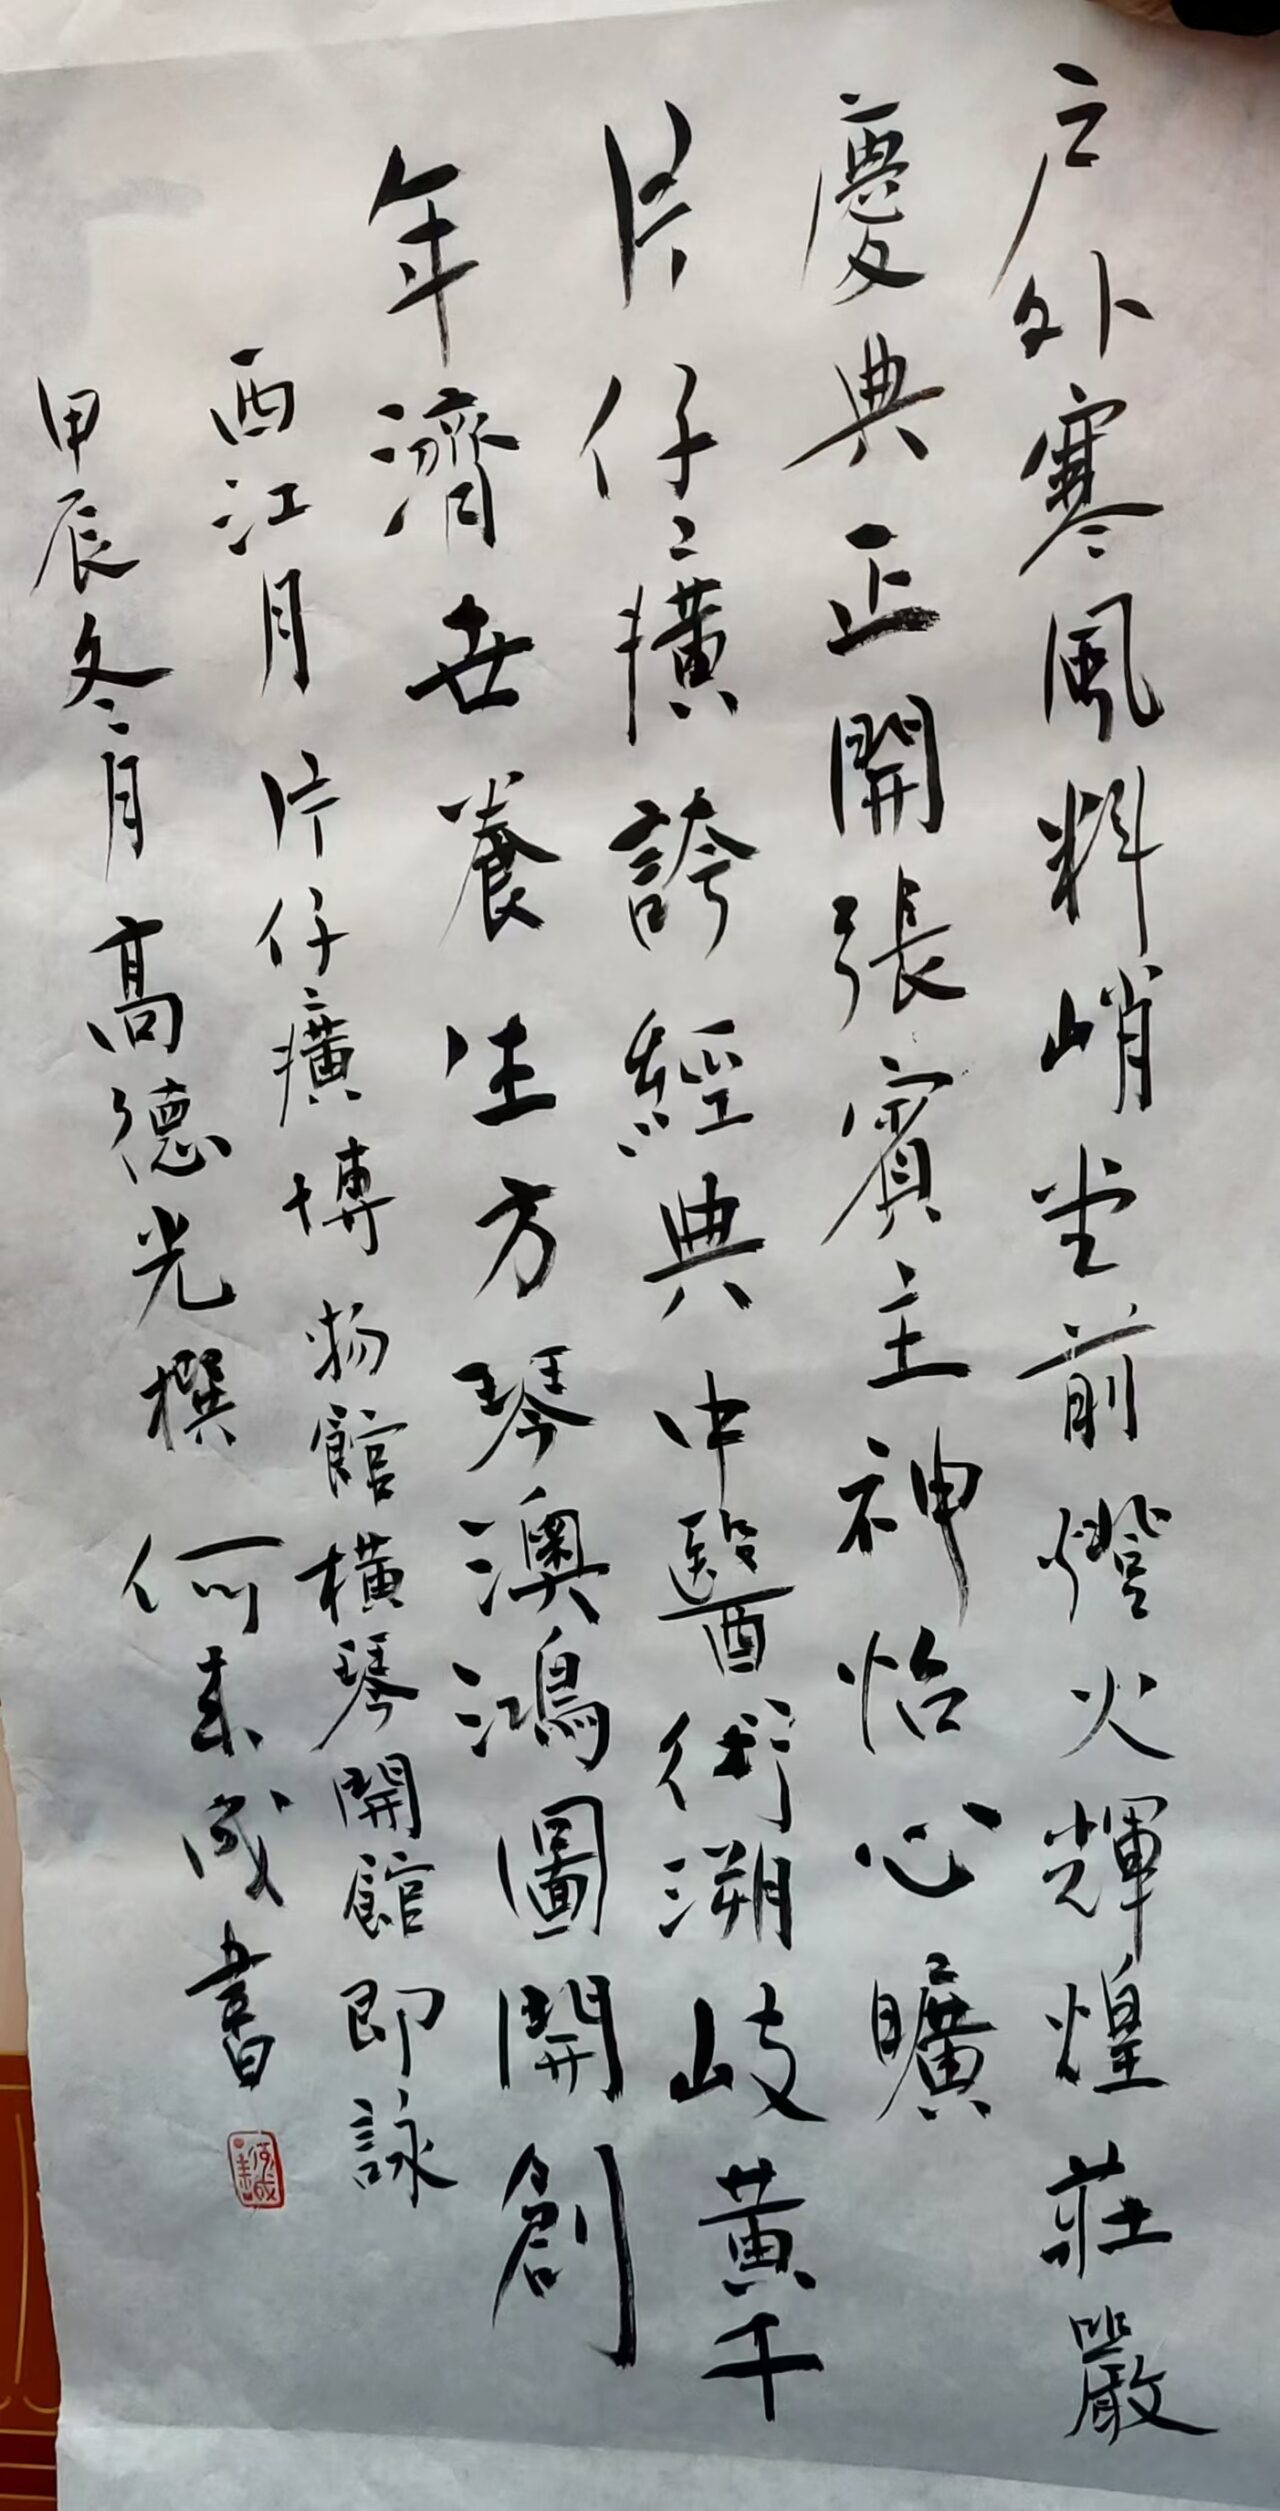 户外寒風料峭堂前燈火輝煌莊嚴
慶典正開張賓主神怡心曠
片仔癀誇經典中醫術溯歧黃千
年濟世養生方琴澳鴻圖開創
西江月 片仔癀博物館橫琴開館即詠
甲辰冬月高德光撰 何来成書